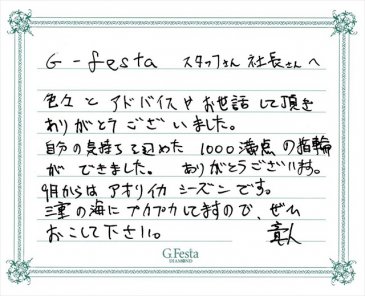 G-festa スタッフさん 社長さんへ
色々とアドバイスやお世話して頂き
ありがとうございました。
自分の気持ちを込めた 1000満点の指輪
ができました。 ありがとうございます。
9月からはアオリイカ シーズンです。
三重の海にプカプカしてますので、ぜひ
おこして下さい。
G.Festa
DIAMOND